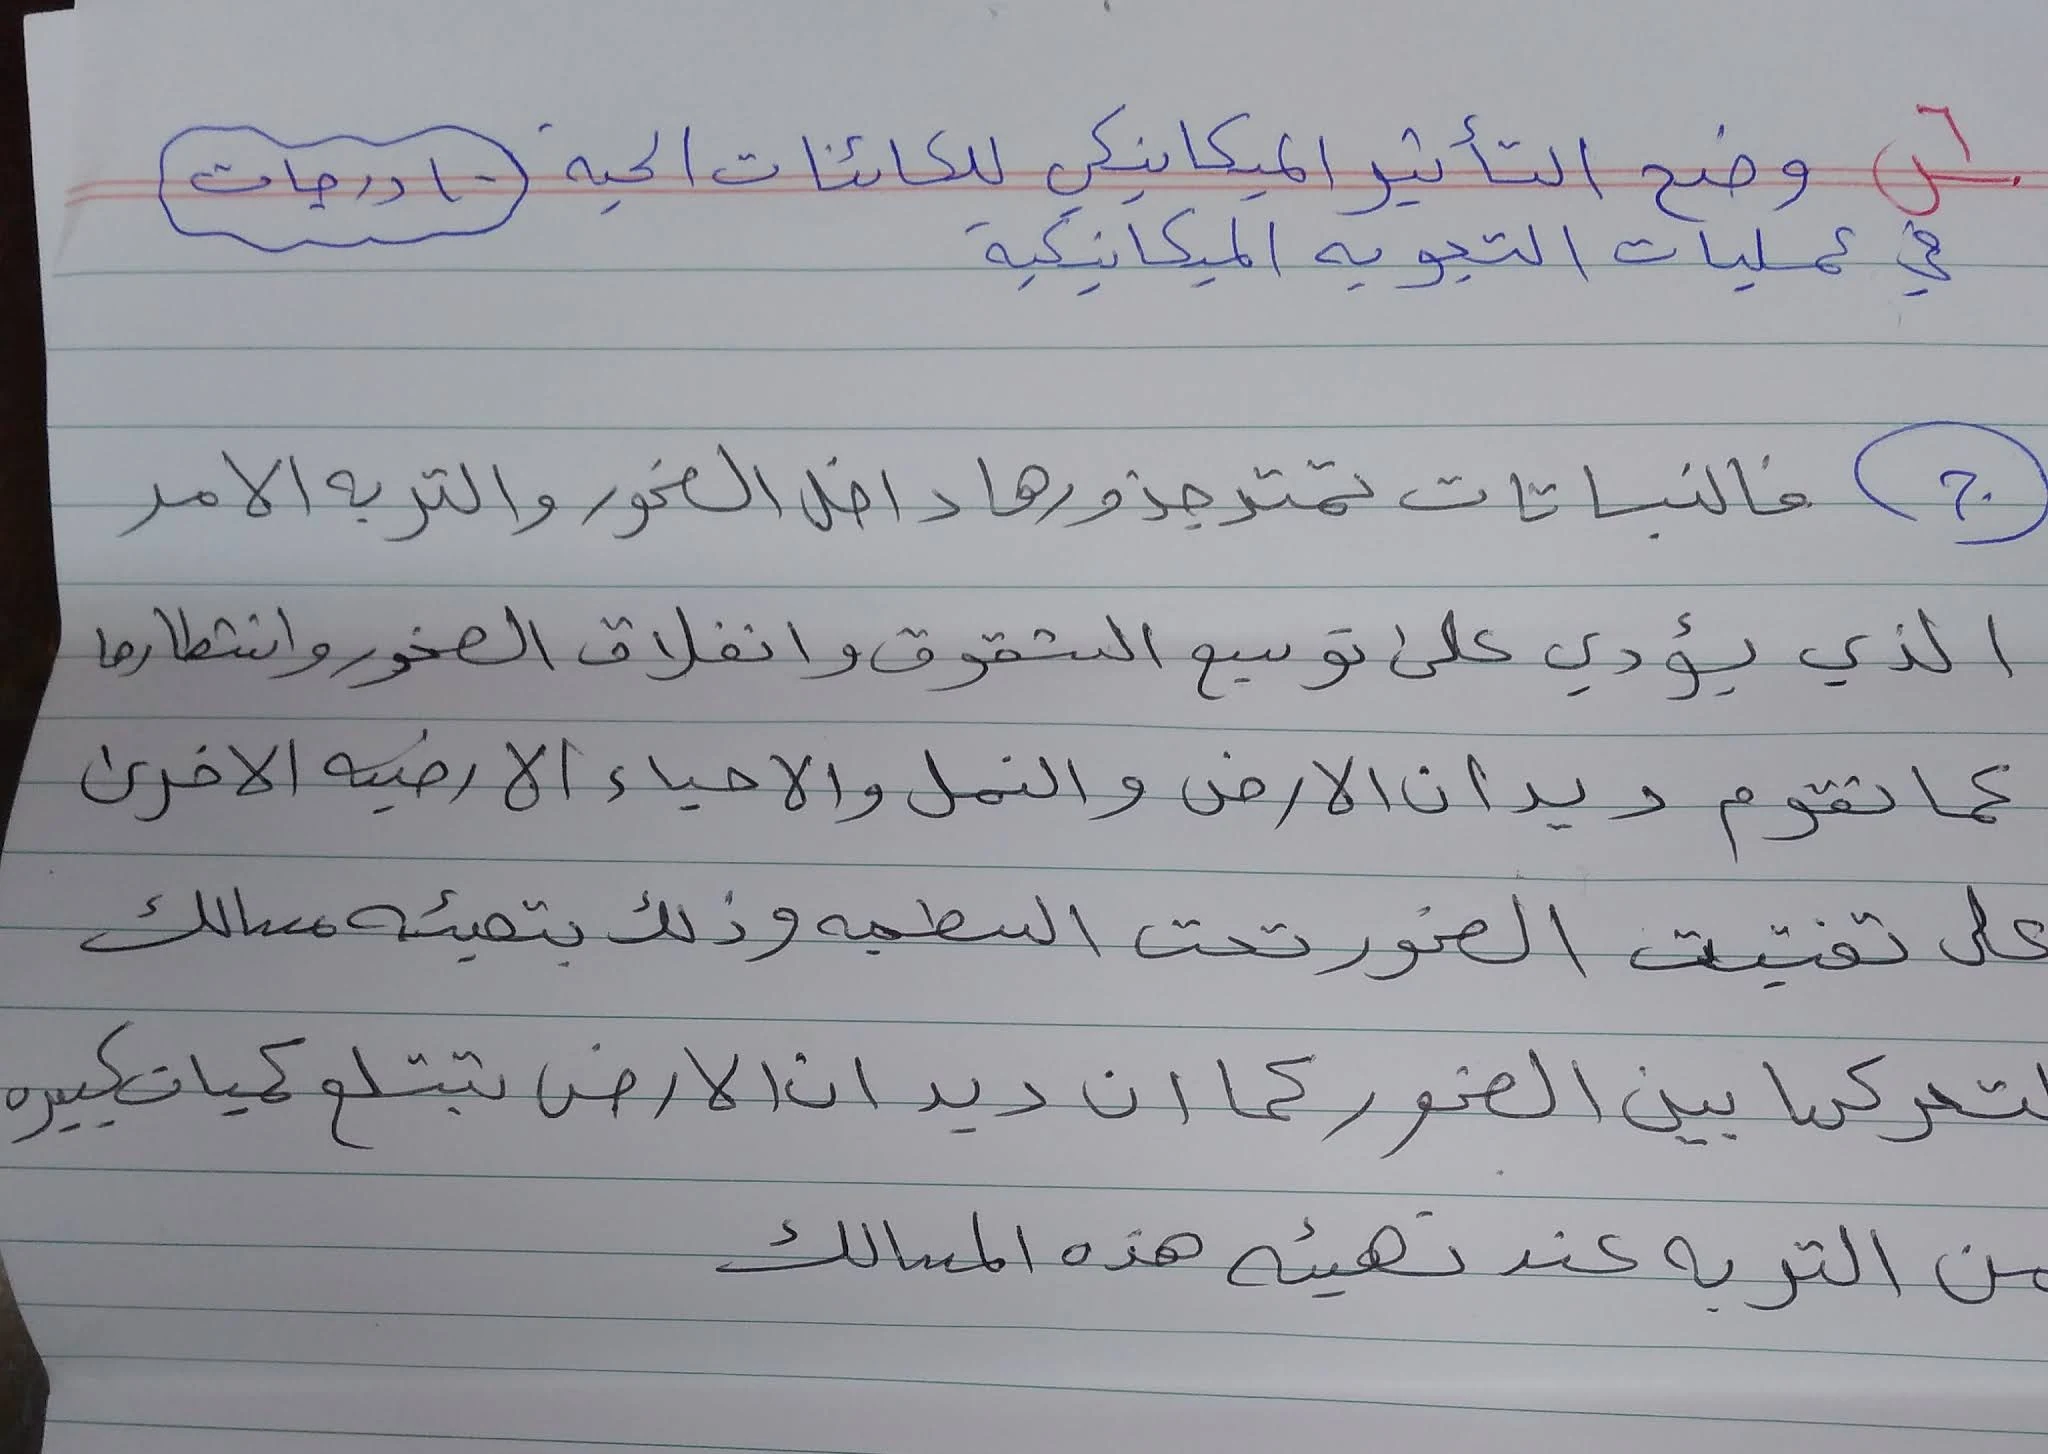 س٦ وضح التأثير الميكانيكي للكائنات الحية ١٠ درجات
في عمليات التجويه الميكانيكية
ج فالنباتات تمتد جذورها داخل الصخور والتربه الامر
الذي يؤدي على توسيع الشقوق وانفلاق الصخور وانشطارها
كما تقوم ديدان الارض والنمل والاحياء الارضيه الاخرى
على تفتيت الصخور تحت السطحيه وذلك بتهيئه مسالك
لتحركها بين الصخور كما ان ديدان الارض تبتلع كميات كبيره
من التربه عند تهيئه هذه المسالك